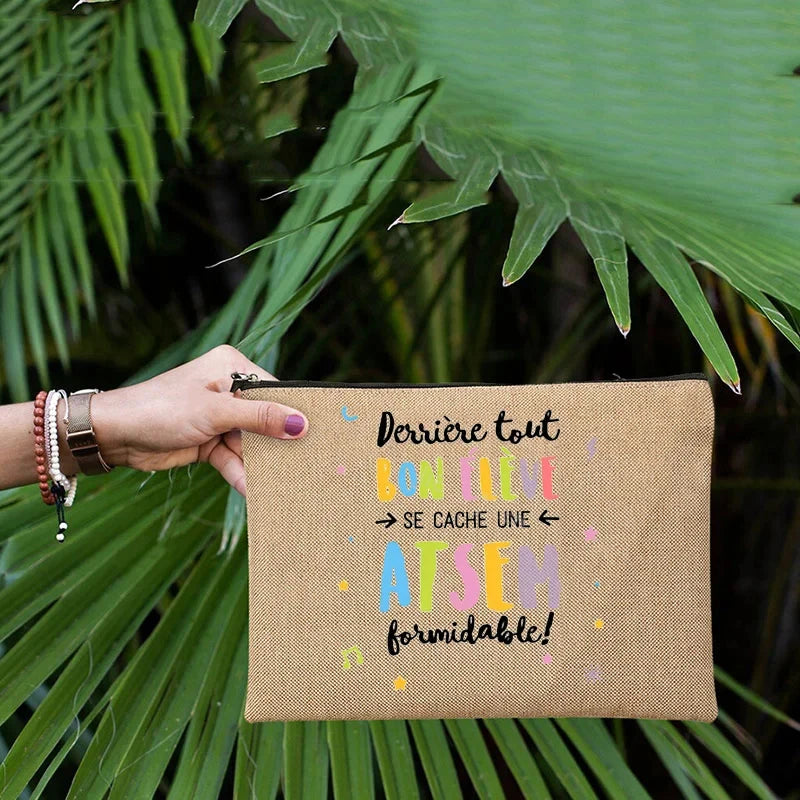 Derrière tout
BON ÉLÈVE
→ SE CACHE UNE ←
ATSEM
formidable!